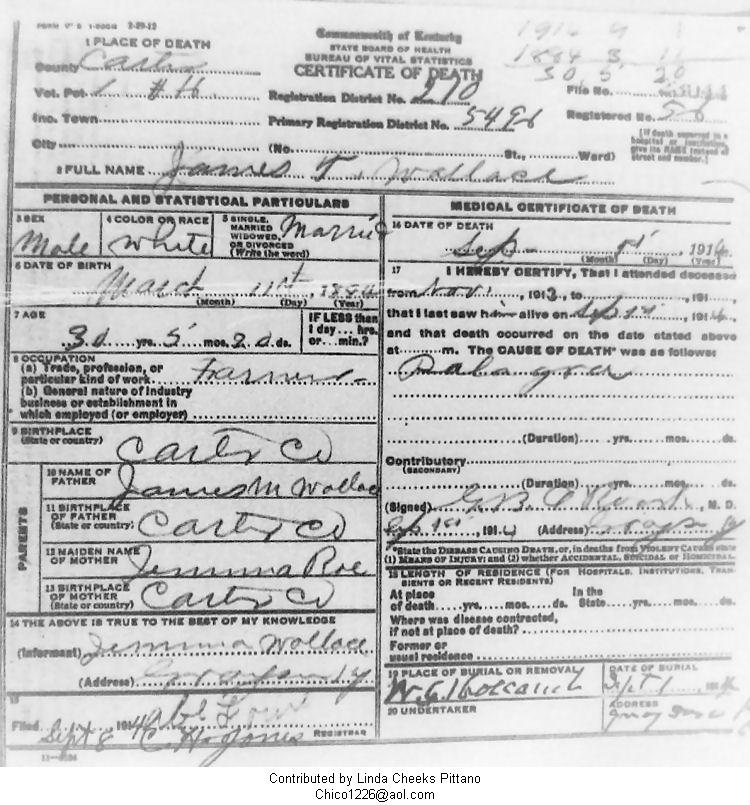 FORM V. S. 1-500M 2-29-12
1914 9 1
1884 3 11
30 5 20
Commonwealth of Kentucky
STATE BOARD OF HEALTH
BUREAU OF VITAL STATISTICS
CERTIFICATE OF DEATH
1 PLACE OF DEATH
County Carter
Vot. Pct 1 #16
Inc. Town
City
Registration District No. 270
Primary Registration District No. 5496
File No.
Registered No.
(No. St., Ward)
[If death occurred in a hospital or institution, give its NAME instead of street and number.]
2 FULL NAME James T. Wallace
PERSONAL AND STATISTICAL PARTICULARS
3 SEX
Male
4 COLOR OR RACE
White
5 SINGLE, MARRIED, WIDOWED, OR DIVORCED (Write the word)
Married
6 DATE OF BIRTH
March 11st, 1884
(Month) (Day) (Year)
7 AGE
30 yrs. 5 mos. 20 ds.
IF LESS than 1 day... hrs. or... min.?
8 OCCUPATION
(a) Trade, profession, or particular kind of work Farmer
(b) General nature of industry business or establishment in which employed (or employer)
9 BIRTHPLACE
(State or country) Carter Co
PARENTS
10 NAME OF FATHER James M Wallace
11 BIRTHPLACE OF FATHER (State or country) Carter Co
12 MAIDEN NAME OF MOTHER Jemima Roe
13 BIRTHPLACE OF MOTHER (State or country) Carter Co
14 THE ABOVE IS TRUE TO THE BEST OF MY KNOWLEDGE
(Informant) Jemima Wallace
(Address)
15
Filed Sept 8 1914
C. H. Jones
REGISTRAR
MEDICAL CERTIFICATE OF DEATH
16 DATE OF DEATH
Sep 1st, 1914
(Month) (Day) (Year)
17 I HEREBY CERTIFY, That I attended deceased
from Nov. 1913, to , 191
that I last saw him alive on Sep 1st, 1914
and that death occurred on the date stated above
at m. The CAUSE OF DEATH* was as follows:
(Duration) yrs. mos. ds.
Contributory
(SECONDARY)
(Duration) yrs. mos. ds.
(Signed) G. B. M. D.
Sep 1st, 1914 (Address)
*State the DISEASE CAUSING DEATH, or, in deaths from VIOLENT CAUSES state (1) MEANS OF INJURY; and (2) whether ACCIDENTAL, SUICIDAL or HOMICIDAL.
18 LENGTH OF RESIDENCE (FOR HOSPITALS, INSTITUTIONS, TRANSIENTS OR RECENT RESIDENTS)
At place of death yrs. mos. ds. In the State yrs. mos. ds.
Where was disease contracted, if not at place of death?
Former or usual residence
19 PLACE OF BURIAL OR REMOVAL
DATE OF BURIAL
Sept 1, 1914
20 UNDERTAKER
ADDRESS
Contributed by Linda Cheeks Pittano
Chico1226@aol.com